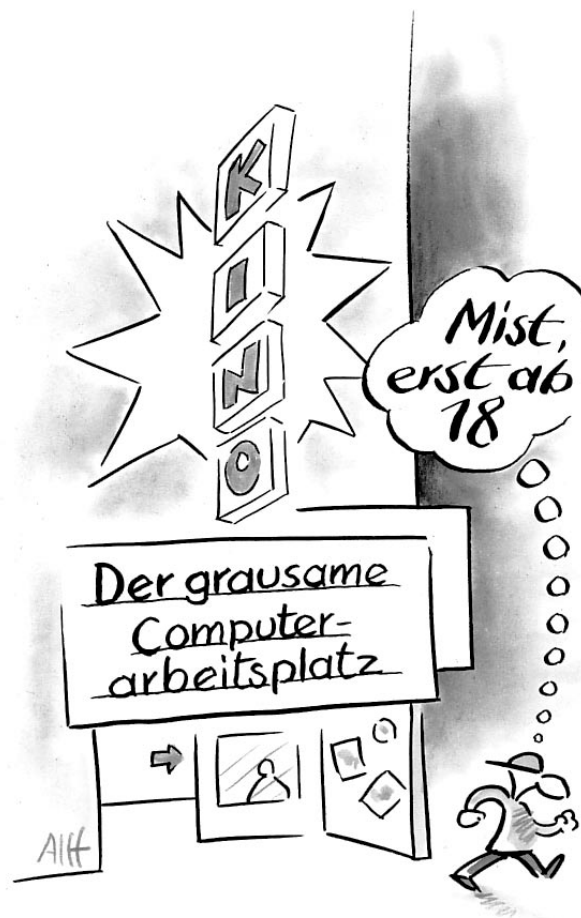 KINO
Mist,
erst ab
18
Der grausame
Computer-
arbeitsplatz